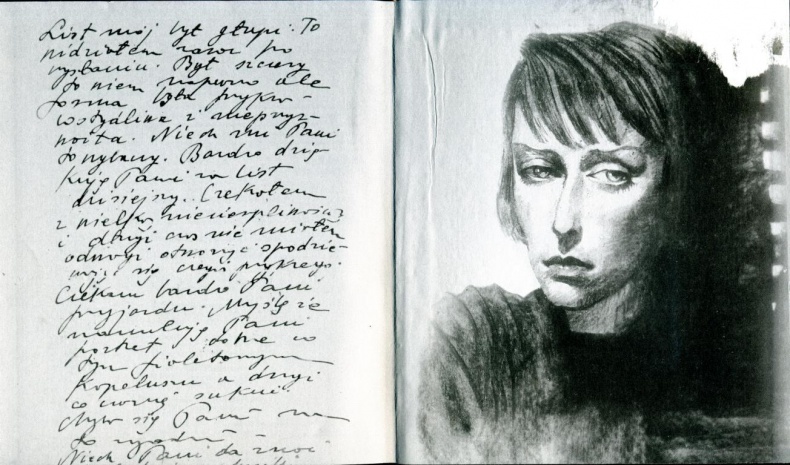 List mój był głupi. To
widziałem zaraz po
wysłaniu. Był szczery
to wiem napewno ale
forma była przykro-
wstydliwa i nieprzy-
zwoita. Niech mi Pani
to wybaczy. Bardzo dzię
kuję Pani za list
dzisiejszy. Czekałem
z wielką niecierpliwością
i długi czas nie miałem
odwagi otworzyć spodzie-
wając się czegoś przykrego.
Czekam bardzo Pani
przyjazdu. Myślę że
namaluję Pani
portret dobrze w
tym fioletowym
Kapeluszu a drugi
w czarnej sukni.
Pani na
to
Niech Pani da znać